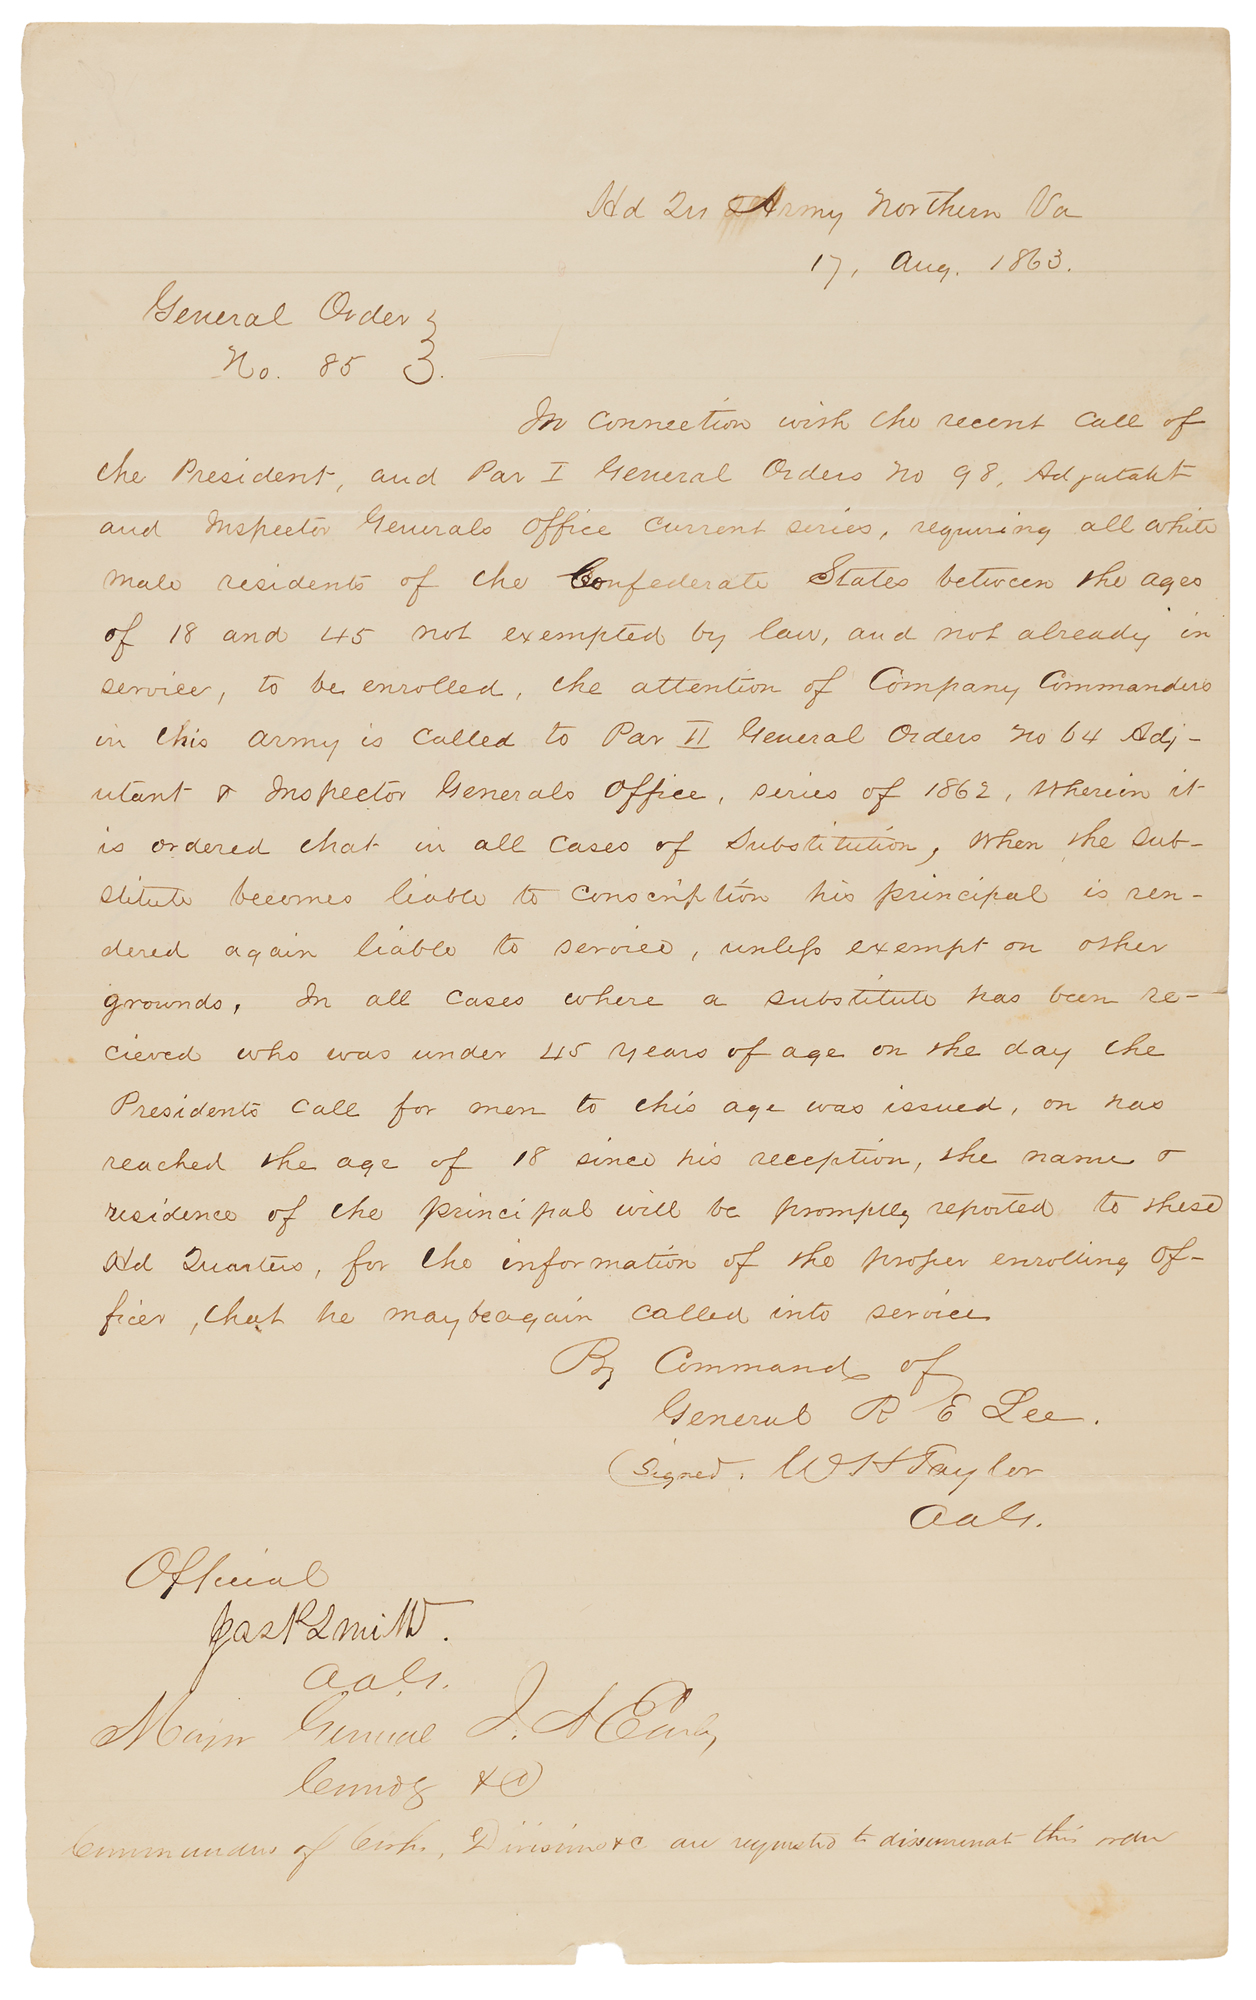 Hd Qrs Army Northern Va
17, Aug. 1863.
General Order }
No. 85 }.
In connection with the recent call of
the President, and Par I General Orders No 98, Adjutant
and Inspector Generals Office current series, requiring all white
male residents of the Confederate States between the ages
of 18 and 45 not exempted by law, and not already in
service, to be enrolled, the attention of Company Commanders
in this army is called to Par II General Orders No 64 Adj-
utant & Inspector Generals Office, series of 1862, wherein it
is ordered that in all cases of substitution, when the sub-
stitute becomes liable to conscription his principal is ren-
dered again liable to service, unless exempt on other
grounds. In all cases where a substitute has been re-
cieved who was under 45 years of age on the day the
Presidents call for men to this age was issued, or has
reached the age of 18 since his reception, the name &
residence of the principal will be promptly reported to these
Hd Quarters, for the information of the proper enrolling of-
ficer, that he may be again called into service
By Command of
General R E Lee.
(Signed. W H Taylor
AAG.
Official
Jas P Smith.
AAG.
Major General J. A Early
Comdg &c
Commanders of Corps, Divisions &c are requested to disseminate this order